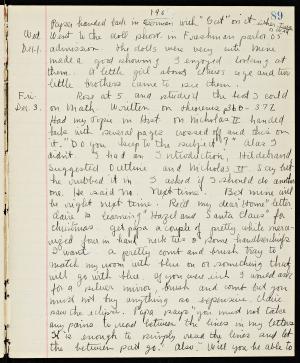 196
89
Papers handed back in German with "Gut" on it
Wed. Went to the doll show in Freshman parlor 5¢
Dec. 1. admission. The dolls were very cute. Mine
made a good showing. I enjoyed looking at
them. A little girl about age and two
little brothers came to see them.
Fri. Rose at 5 and studied the best I could
Dec. 3. on Math. Written on theorems 360 - 372
Had my Topic in Hist. on Nicholas II handed
back with several pages crossed off and this on
it. "Do you keep to the subject?" Alas I
didn't. I had an Introduction, Hildebrand,
suggested Outline and Nicholas II. I say but
he rubbed it in. I asked if I should do another
one. He said no. Next time. Bet mine will
be right next time. Rec'd my dear "Home" letter.
Claire is learning "Hazel and Santa Claus" for
Christmas. Get papa a couple of pretty white merc-
erized four in hand neck ties & some handkerchiefs
I want a pretty comb and brush tray to
match my room with blue on or something that
will go with blue. If you were rich I would ask
for a silver mirror, brush and comb but you
must not buy anything so expensive. Claire
saw the eclipse. Papa says "you must not take
any pains to read between the lines in my letters.
It is enough to simply read the lines and let
the between part go." Also, "Will you be able to